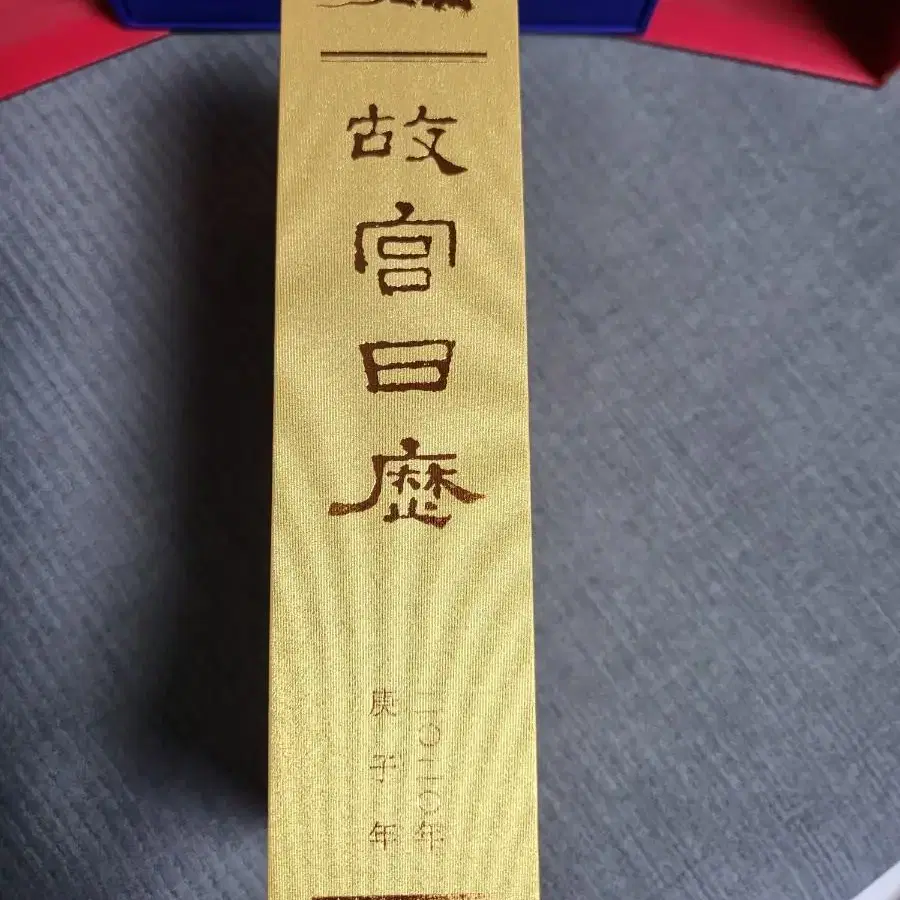 故宫日历
二〇二〇年
庚子年